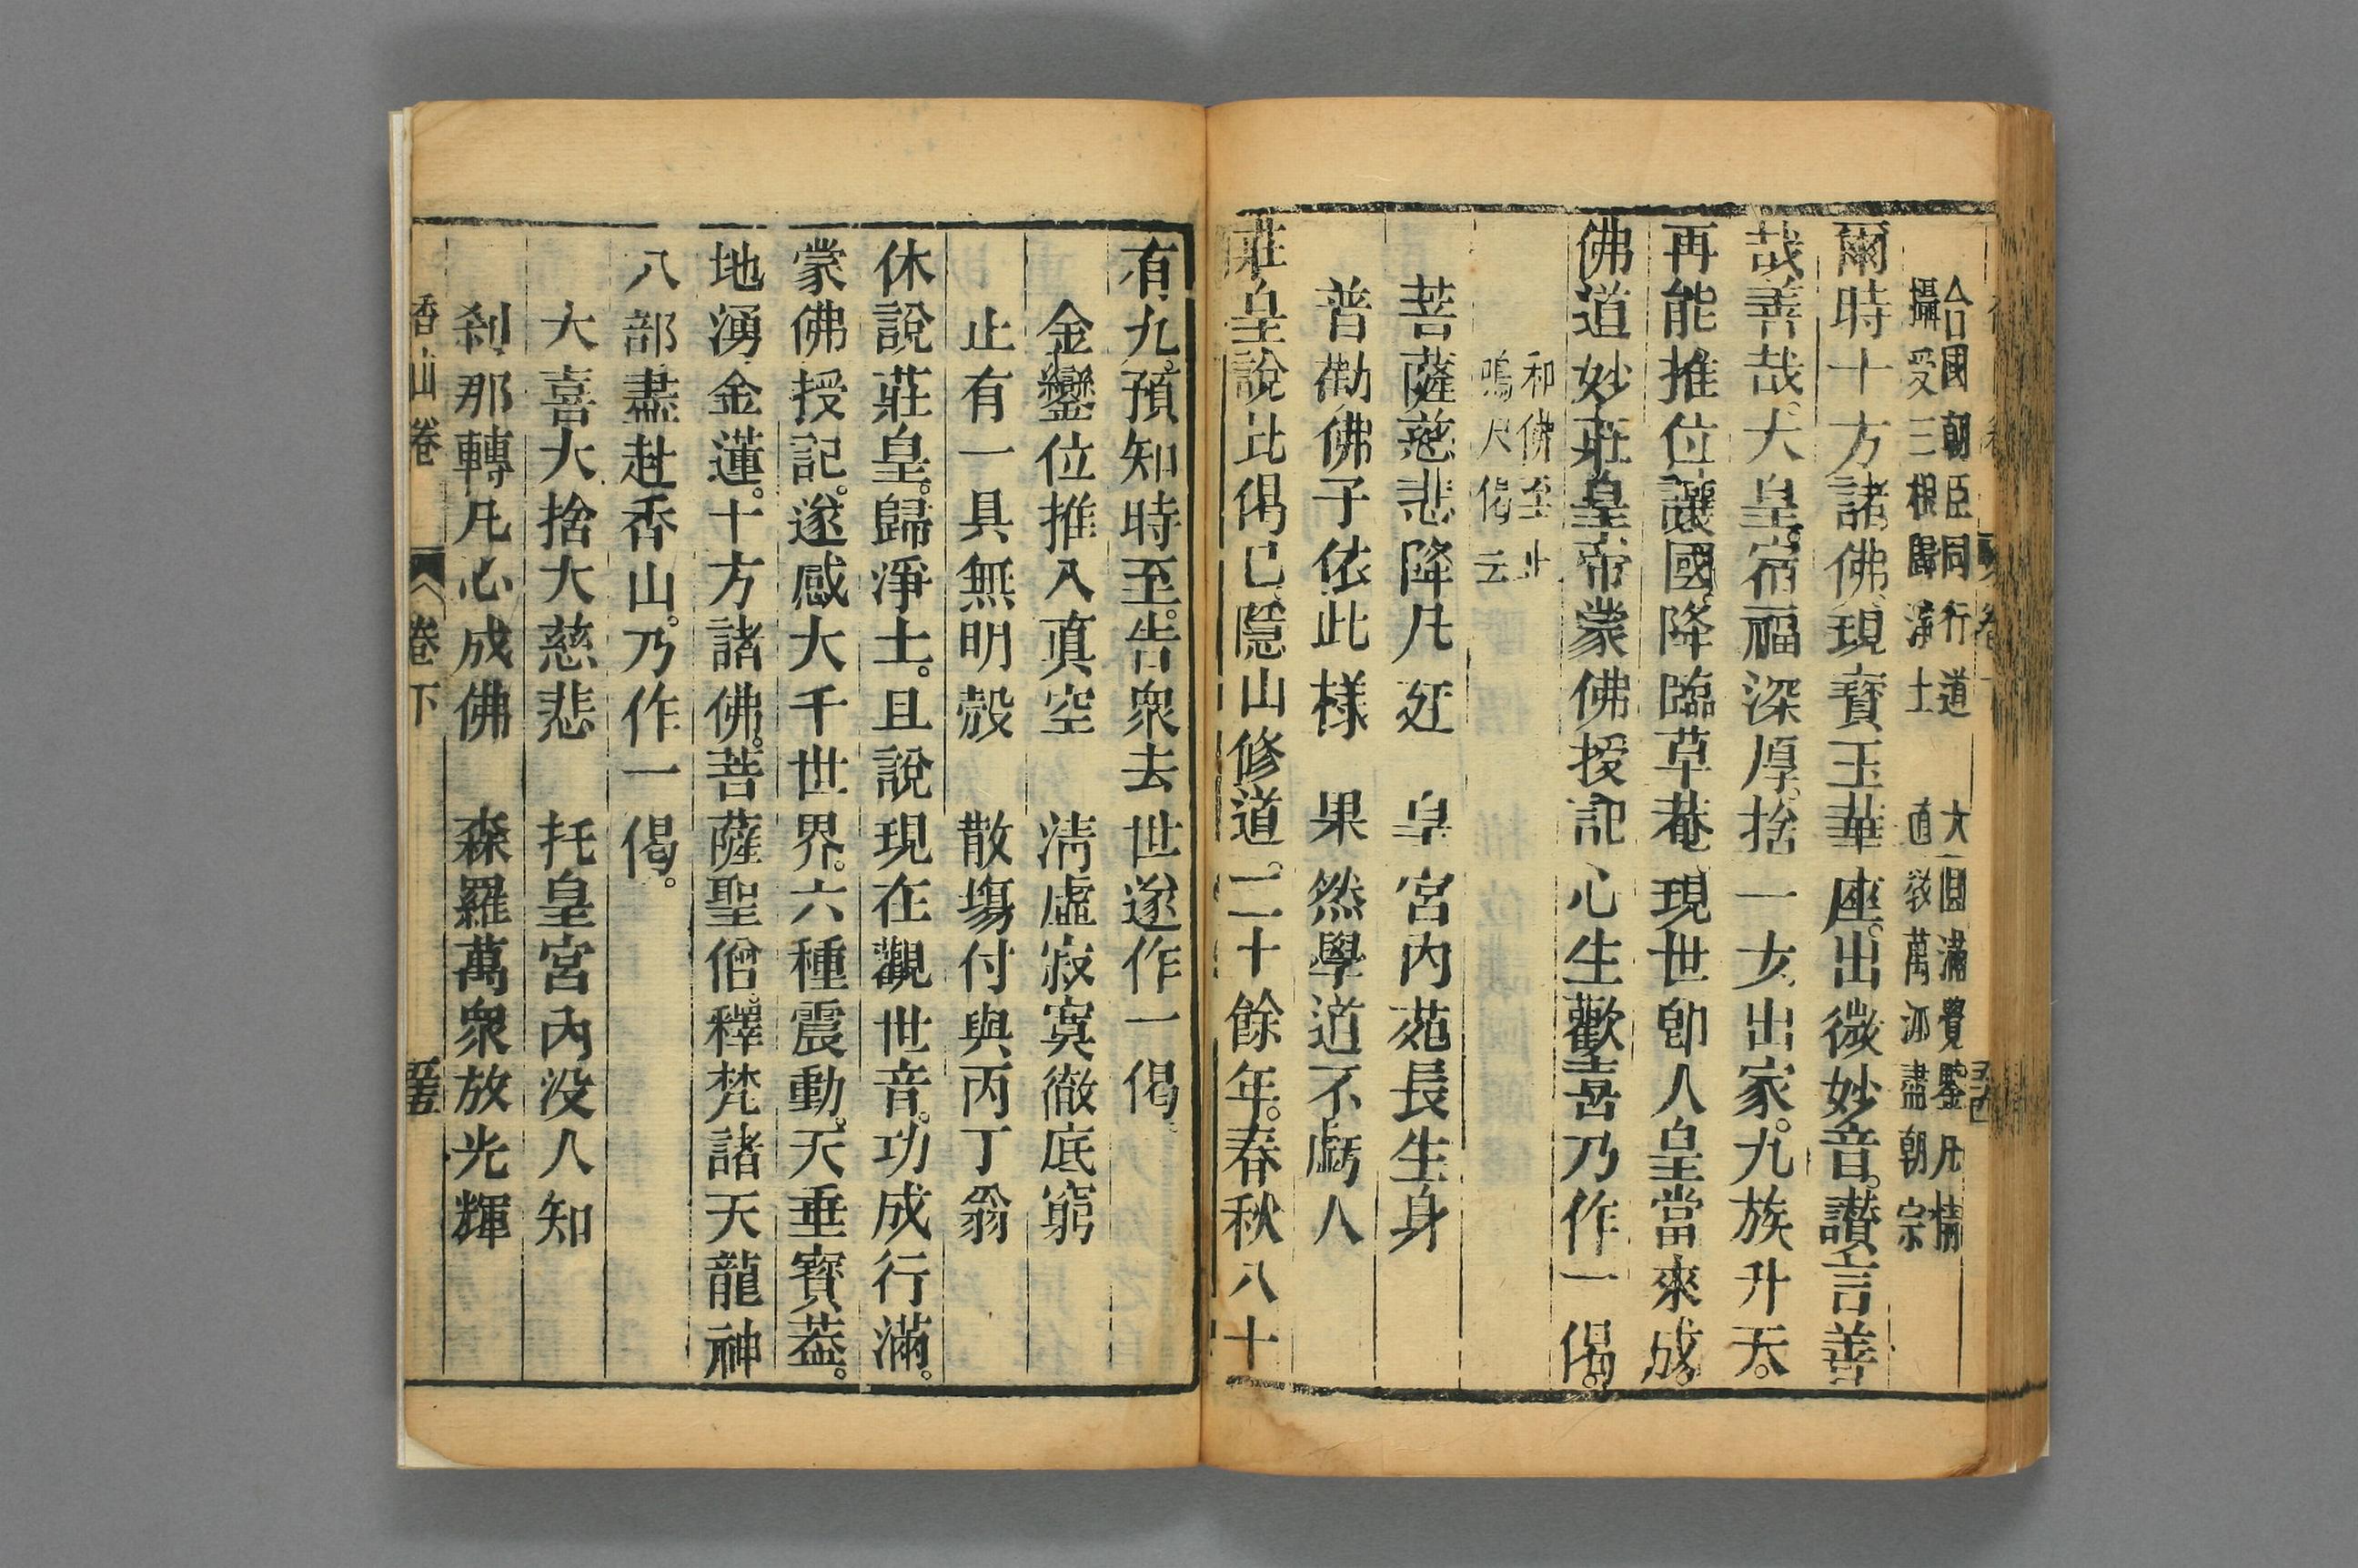 合國朝臣同行道　大圓滿覺鑒凡情
攝受三根歸淨土　直教萬派盡朝宗
爾時十方諸佛現寶玉華座。出微妙音。讚言善
哉善哉。大皇。宿福深厚。捨一女出家。九族升天。
再能推位讓國。降臨草菴。現世卽人皇當來成。
佛道妙莊皇帝蒙佛授記心生歡喜乃作一偈。
和佛至止
鳴尺偈云
菩薩慈悲降凡迂　皇宮內苑長生身
普勸佛子依此樣　果然學道不虧人
莊皇說此偈已隱山修道。二十餘年。春秋八十
有九。預知時至。告衆去世遂作一偈。
金鑾位推入真空　清虛寂寞徹底窮
止有一具無明殼　散塲付與丙丁翁
休說莊皇。歸淨土。且說現在觀世音。功成行滿。
蒙佛授記。遂感大千世界。六種震動。天垂寶葢。
地湧金蓮。十方諸佛。菩薩聖僧釋梵諸天龍神
八部盡赴香山。乃作一偈。
大喜大捨大慈悲　托皇宮內没人知
刹那轉凡心成佛　森羅萬衆放光輝
香山卷　卷下　五十五